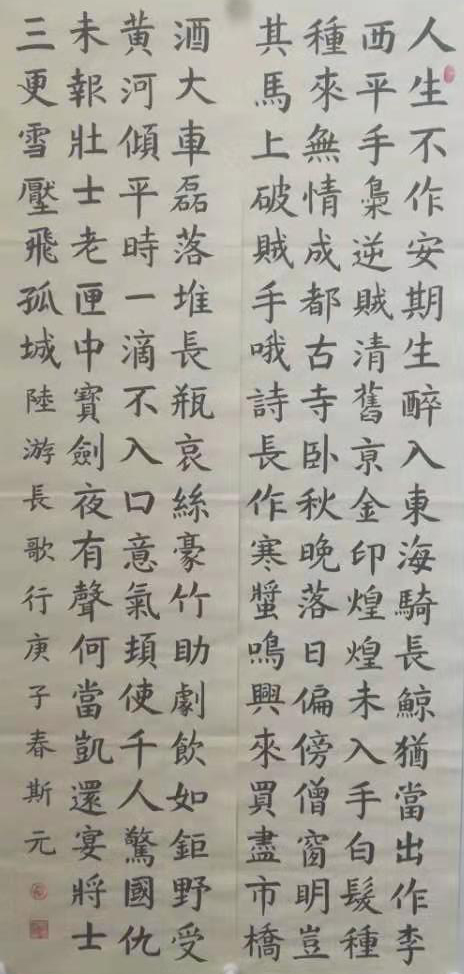 人生不作安期生醉入東海騎長鯨猶當出作李
西平手梟逆賊清舊亰金印煌煌未入手白髮種
種來無情成都古寺卧秋晚落日偏傍僧窗明豈
其馬上破賊手哦詩長作寒螿鳴興來買盡市橋
酒大車磊落堆長瓶哀絲豪竹助劇飲如鉅野受
黄河傾平時一滴不入口意氣頓使千人驚國仇
未報壯士老匣中寶劍夜有聲何當凱還宴將士
三更雪壓飛孤城陸游長歌行庚子春斯元